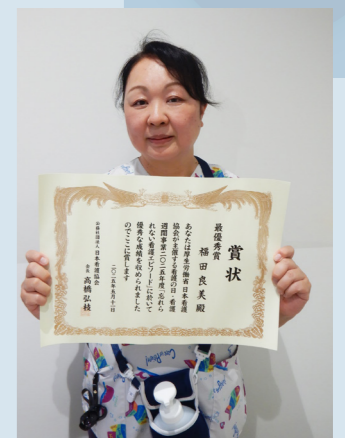 賞状
最優秀賞
福田良美殿
あなたは厚生労働省日本看護
協会が主催する看護の日・看護
週間事業二〇二五年度「忘れら
れない看護エピソード」に於いて
優秀な成績を収められました
のでここに賞します
二〇二五年五月十一日
公益社団法人 日本看護協会
会長 高橋弘枝